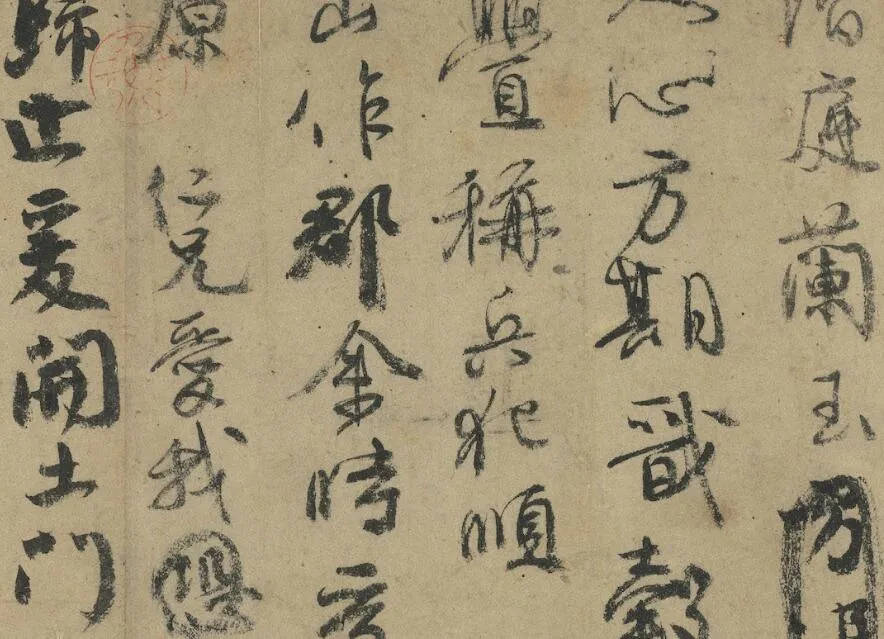 階庭蘭玉
心方期戩穀
釁稱兵犯順
山作郡余時
原仁兄愛我
歸止爰開土門